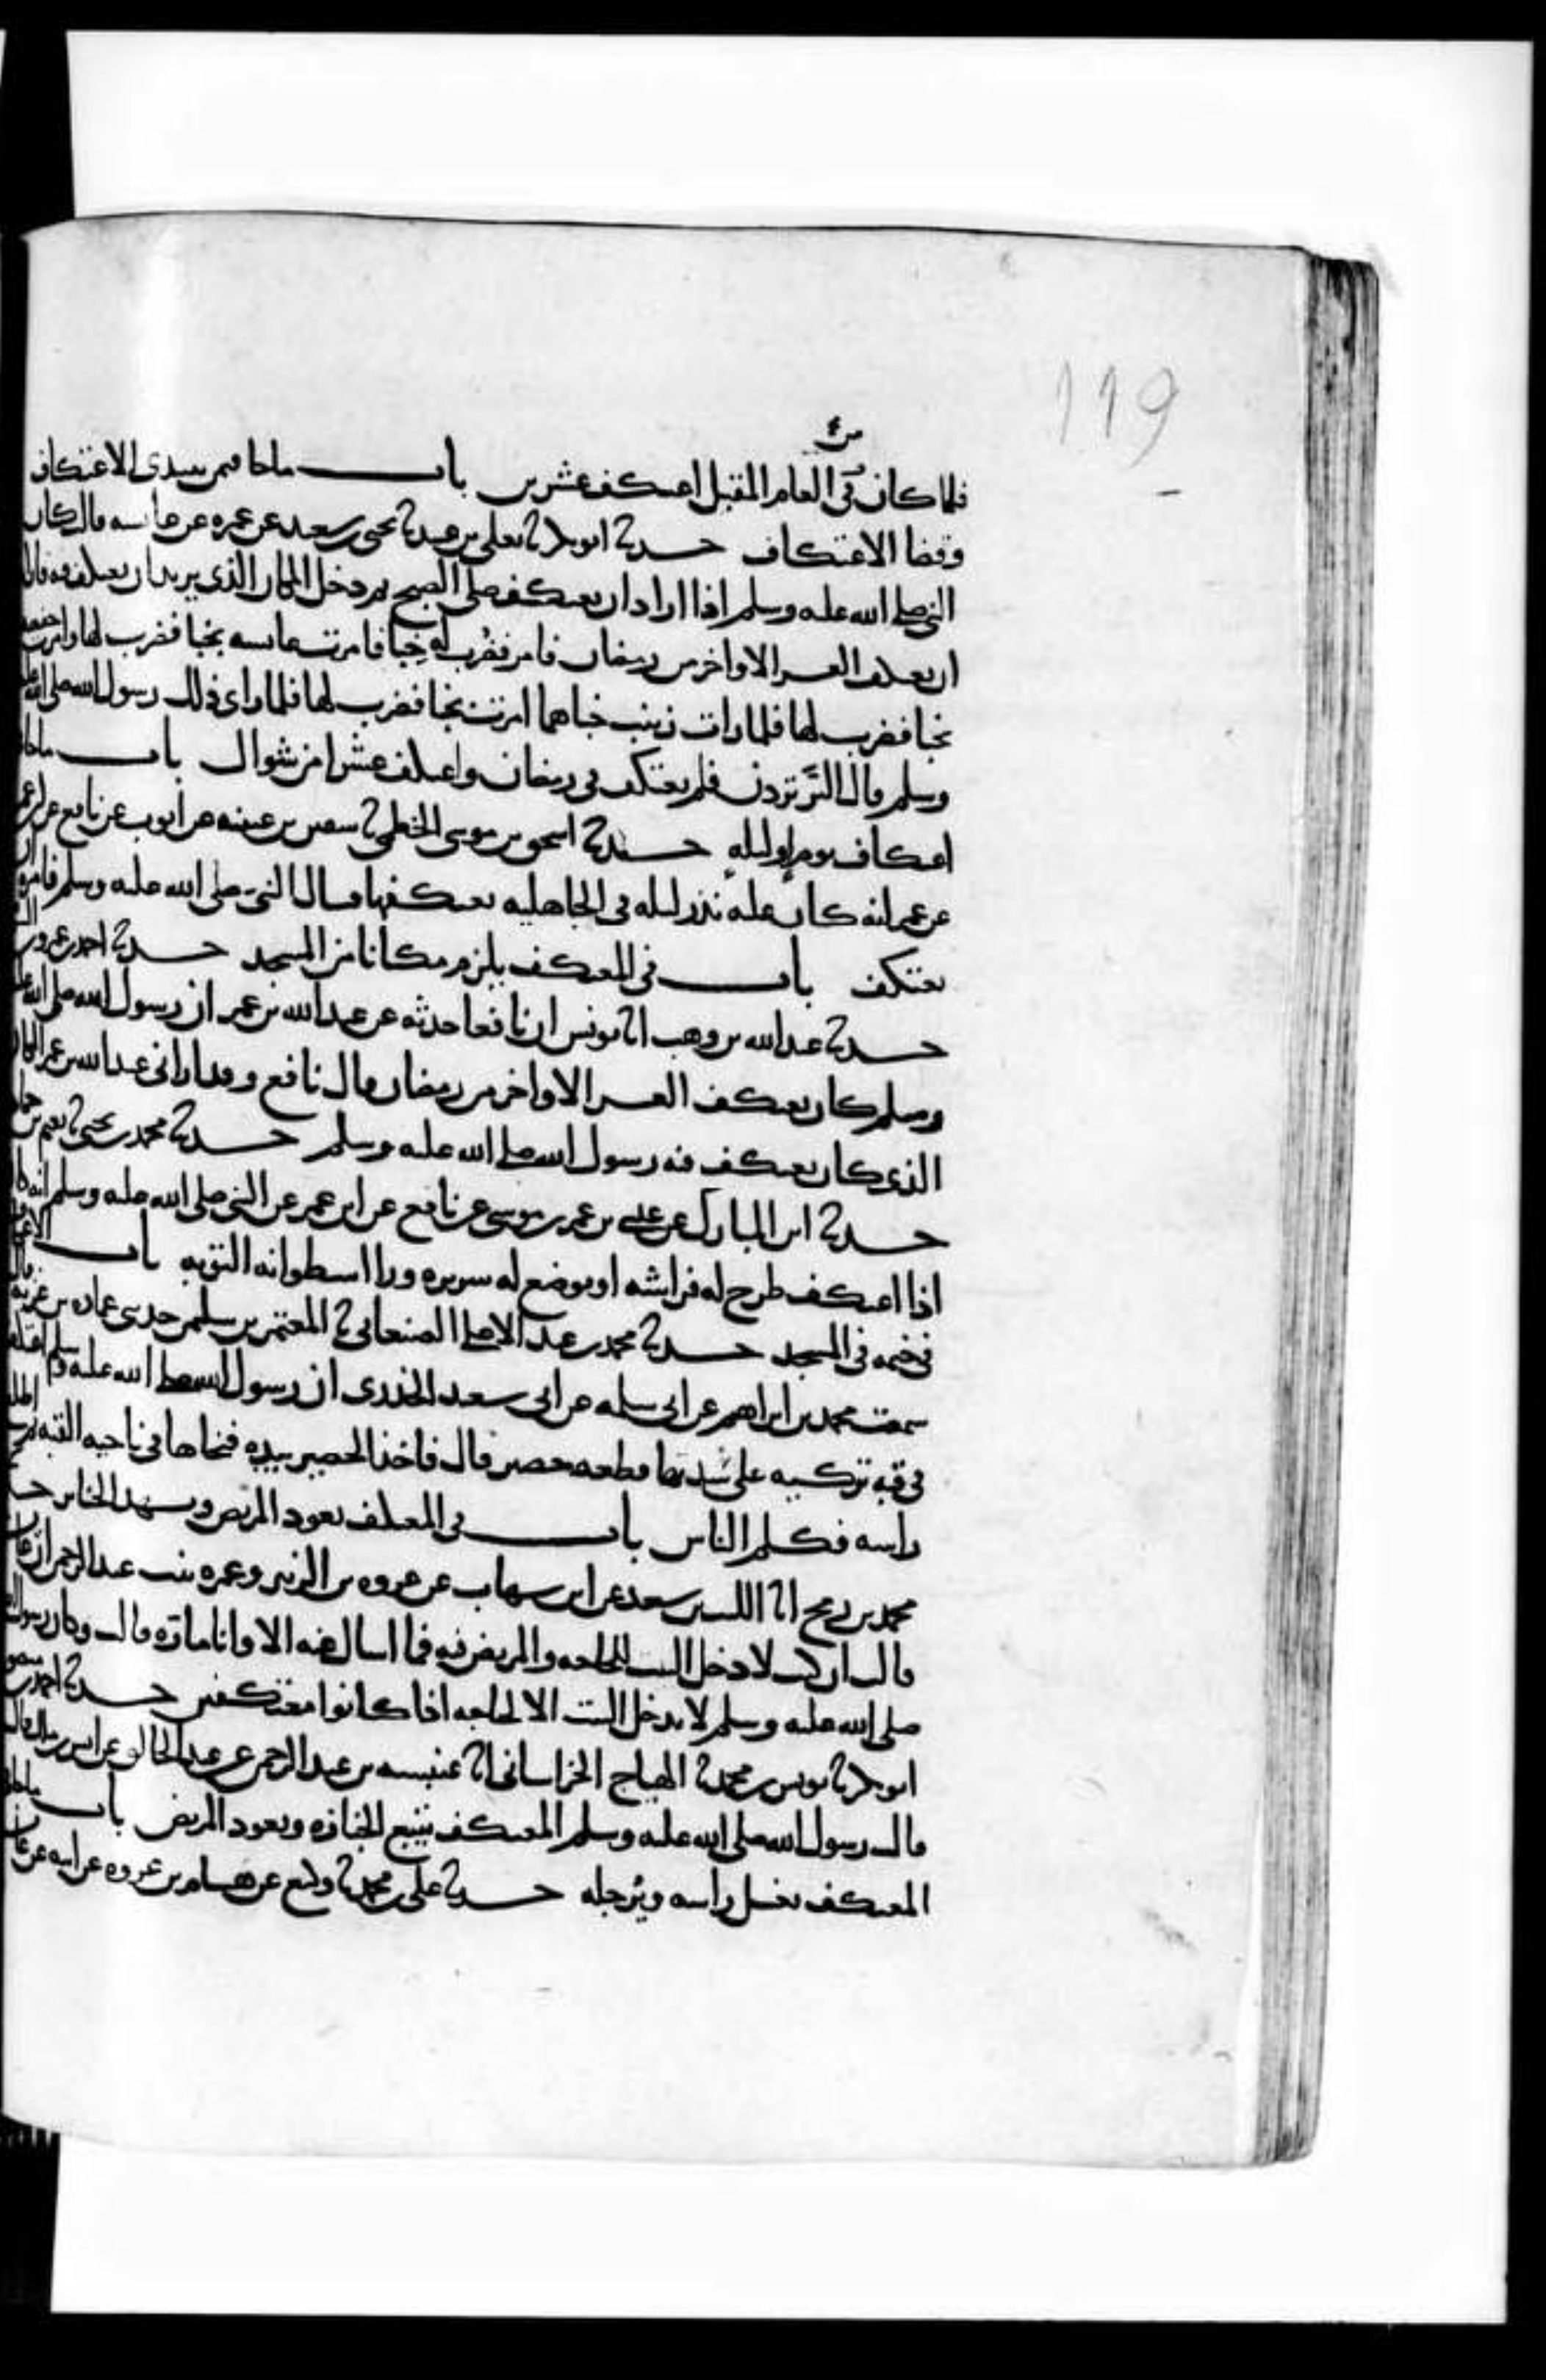 119
من
فلما كان في العام المقبل اعتكف عشرين باب ما جا فيمن يبتدي الاعتكاف
وقضا الاعتكاف حدثنا ابو بكر ثنا يعلى بن عبيد ثنا يحيى بن سعيد عن عمره عن عايشه قالت كان
النبي صلى الله عليه وسلم اذا اراد ان يعتكف صلى الصبح ثم دخل المكان الذي يريد ان يعتكف فيه فاراد
ان يعتكف العشر الاواخر من رمضان فامر فضرب له خبا فامرت عايشه بخبا فضرب لها وامرت حفصه
بخبا فضرب لها فلما رات زينب خباهما امرت بخبا فضرب لها فلما راى ذلك رسول الله صلى الله عليه
وسلم قال البر تردن فلم يعتكف في رمضان واعتكف عشرا من شوال باب ما جا في
اعتكاف يوم او ليله حدثنا اسحق بن موسى الخطمي ثنا سفين بن عيينه عن ايوب عن نافع عن ابن عمر
عن عمر انه كان عليه نذر ليله في الجاهليه يعتكفها فسال النبي صلى الله عليه وسلم فامره ان
يعتكف باب في المعتكف يلزم مكانا من المسجد حدثنا احمد بن عمرو بن السرح
حدثنا عبد الله بن وهب انا يونس ان نافعا حدثه عن عبد الله بن عمر ان رسول الله صلى الله عليه
وسلم كان يعتكف العشر الاواخر من رمضان قال نافع وقد اراني عبد الله بن عمر المكان
الذي كان يعتكف فيه رسول الله صلى الله عليه وسلم حدثنا محمد بن يحيى ثنا نعيم بن حماد
حدثنا ابن المبارك عن عيسى بن عمر بن موسى عن نافع عن ابن عمر عن النبي صلى الله عليه وسلم انه كان
اذا اعتكف طرح له فراشه او يوضع له سريره ورا اسطوانه التوبه باب الاعتكاف
في خيمه في المسجد حدثنا محمد بن عبد الاعلى الصنعاني ثنا المعتمر بن سليمن حدثني عماره بن غزيه قال
سمعت محمد بن ابراهيم عن ابي سلمه عن ابي سعيد الخدري ان رسول الله صلى الله عليه وسلم اعتكف
في قبه تركيه على سدتها قطعه حصير قال فاخذ الحصير بيده فنحاها في ناحيه القبه ثم اطلع
راسه فكلم الناس باب في المعتكف يعود المريض ويشهد الجنايز حدثنا
محمد بن رمح انا الليث بن سعد عن ابن شهاب عن عروه بن الزبير وعمره بنت عبد الرحمن ان عايشه
قالت ان كنت لادخل البيت للحاجه والمريض فيه فما اسال عنه الا وانا ماره قالت وكان رسول الله
صلى الله عليه وسلم لا يدخل البيت الا لحاجه اذا كانوا معتكفين حدثنا احمد بن منصور
ابو بكر ثنا يونس بن محمد ثنا الهياج الخراساني انا عنبسه بن عبد الرحمن عن عبد الخالق عن انس بن مالك قال
قال رسول الله صلى الله عليه وسلم المعتكف يتبع الجنازه ويعود المريض باب ما جا في
المعتكف يغسل راسه ويرجله حدثنا علي بن محمد ثنا وكيع عن هشام بن عروه عن ابيه عن عايشه